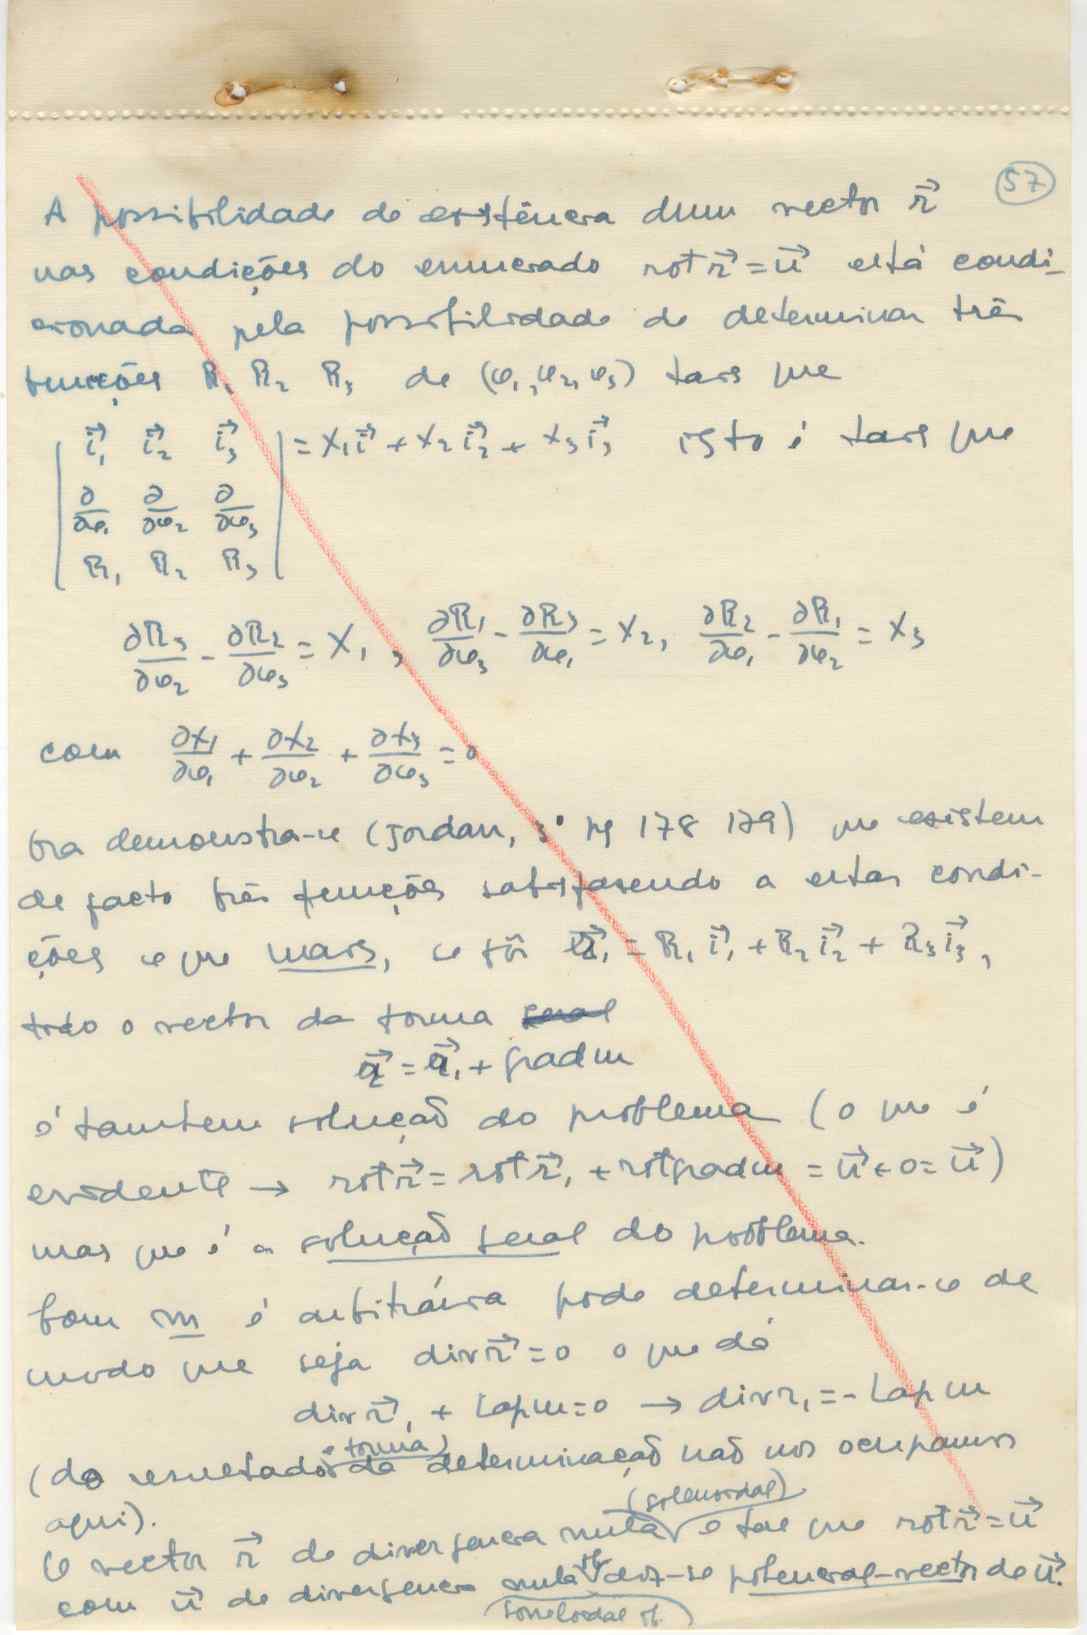 57
A possibilidade de existência dum vector r⃗
nas condições do enunciado rot r⃗ = u⃗ está condi-
cionada pela possibilidade de determinar três
funções R₁ R₂ R₃ de (φ₁, φ₂, φ₃) tais que
| i⃗₁ i⃗₂ i⃗₃ | = X₁i⃗ + X₂i⃗₂ + X₃i⃗₃ isto é tais que
| ∂/∂φ₁ ∂/∂φ₂ ∂/∂φ₃ |
| R₁ R₂ R₃ |
∂R₃/∂φ₂ - ∂R₂/∂φ₃ = X₁, ∂R₁/∂φ₃ - ∂R₃/∂φ₁ = X₂, ∂R₂/∂φ₁ - ∂R₁/∂φ₂ = X₃
com ∂X₁/∂φ₁ + ∂X₂/∂φ₂ + ∂X₃/∂φ₃ = 0
Ora demonstra-se (Jordan, 3º pg 178 179) que existem
de facto três funções satisfazendo a estas condi-
ções e que mais, se fôr r⃗₁ = R₁i⃗₁ + R₂i⃗₂ + R₃i⃗₃,
todo o vector da forma geral
r⃗ = r⃗₁ + grad m
é tambem solução do problema (o que é
evidente → rot r⃗ = rot r⃗₁ + rot grad m = u⃗ + 0 = u⃗)
mas que é a solução geral do problema.
Como m é arbitrária pode determinar-se de
modo que seja div r⃗ = 0 o que dá
div r⃗₁ + Lap m = 0 → div r₁ = - Lap m
(do resultado e forma da determinação não nos ocupamos
aqui).
O vector r⃗ de divergencia nula (solenoidal) e tal que rot r⃗ = u⃗
com u⃗ de divergencia nula tb diz-se potencial-vector de u⃗.
(solenoidal tb.)